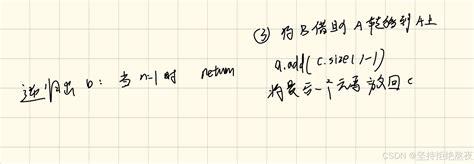 递归出口：当 n=1 时 return
③ 将 B 借助 A 转移到 A 上
a.add(c.size()-1)
将最后一个元素放回 c
CSDN @坚持拒绝熬夜